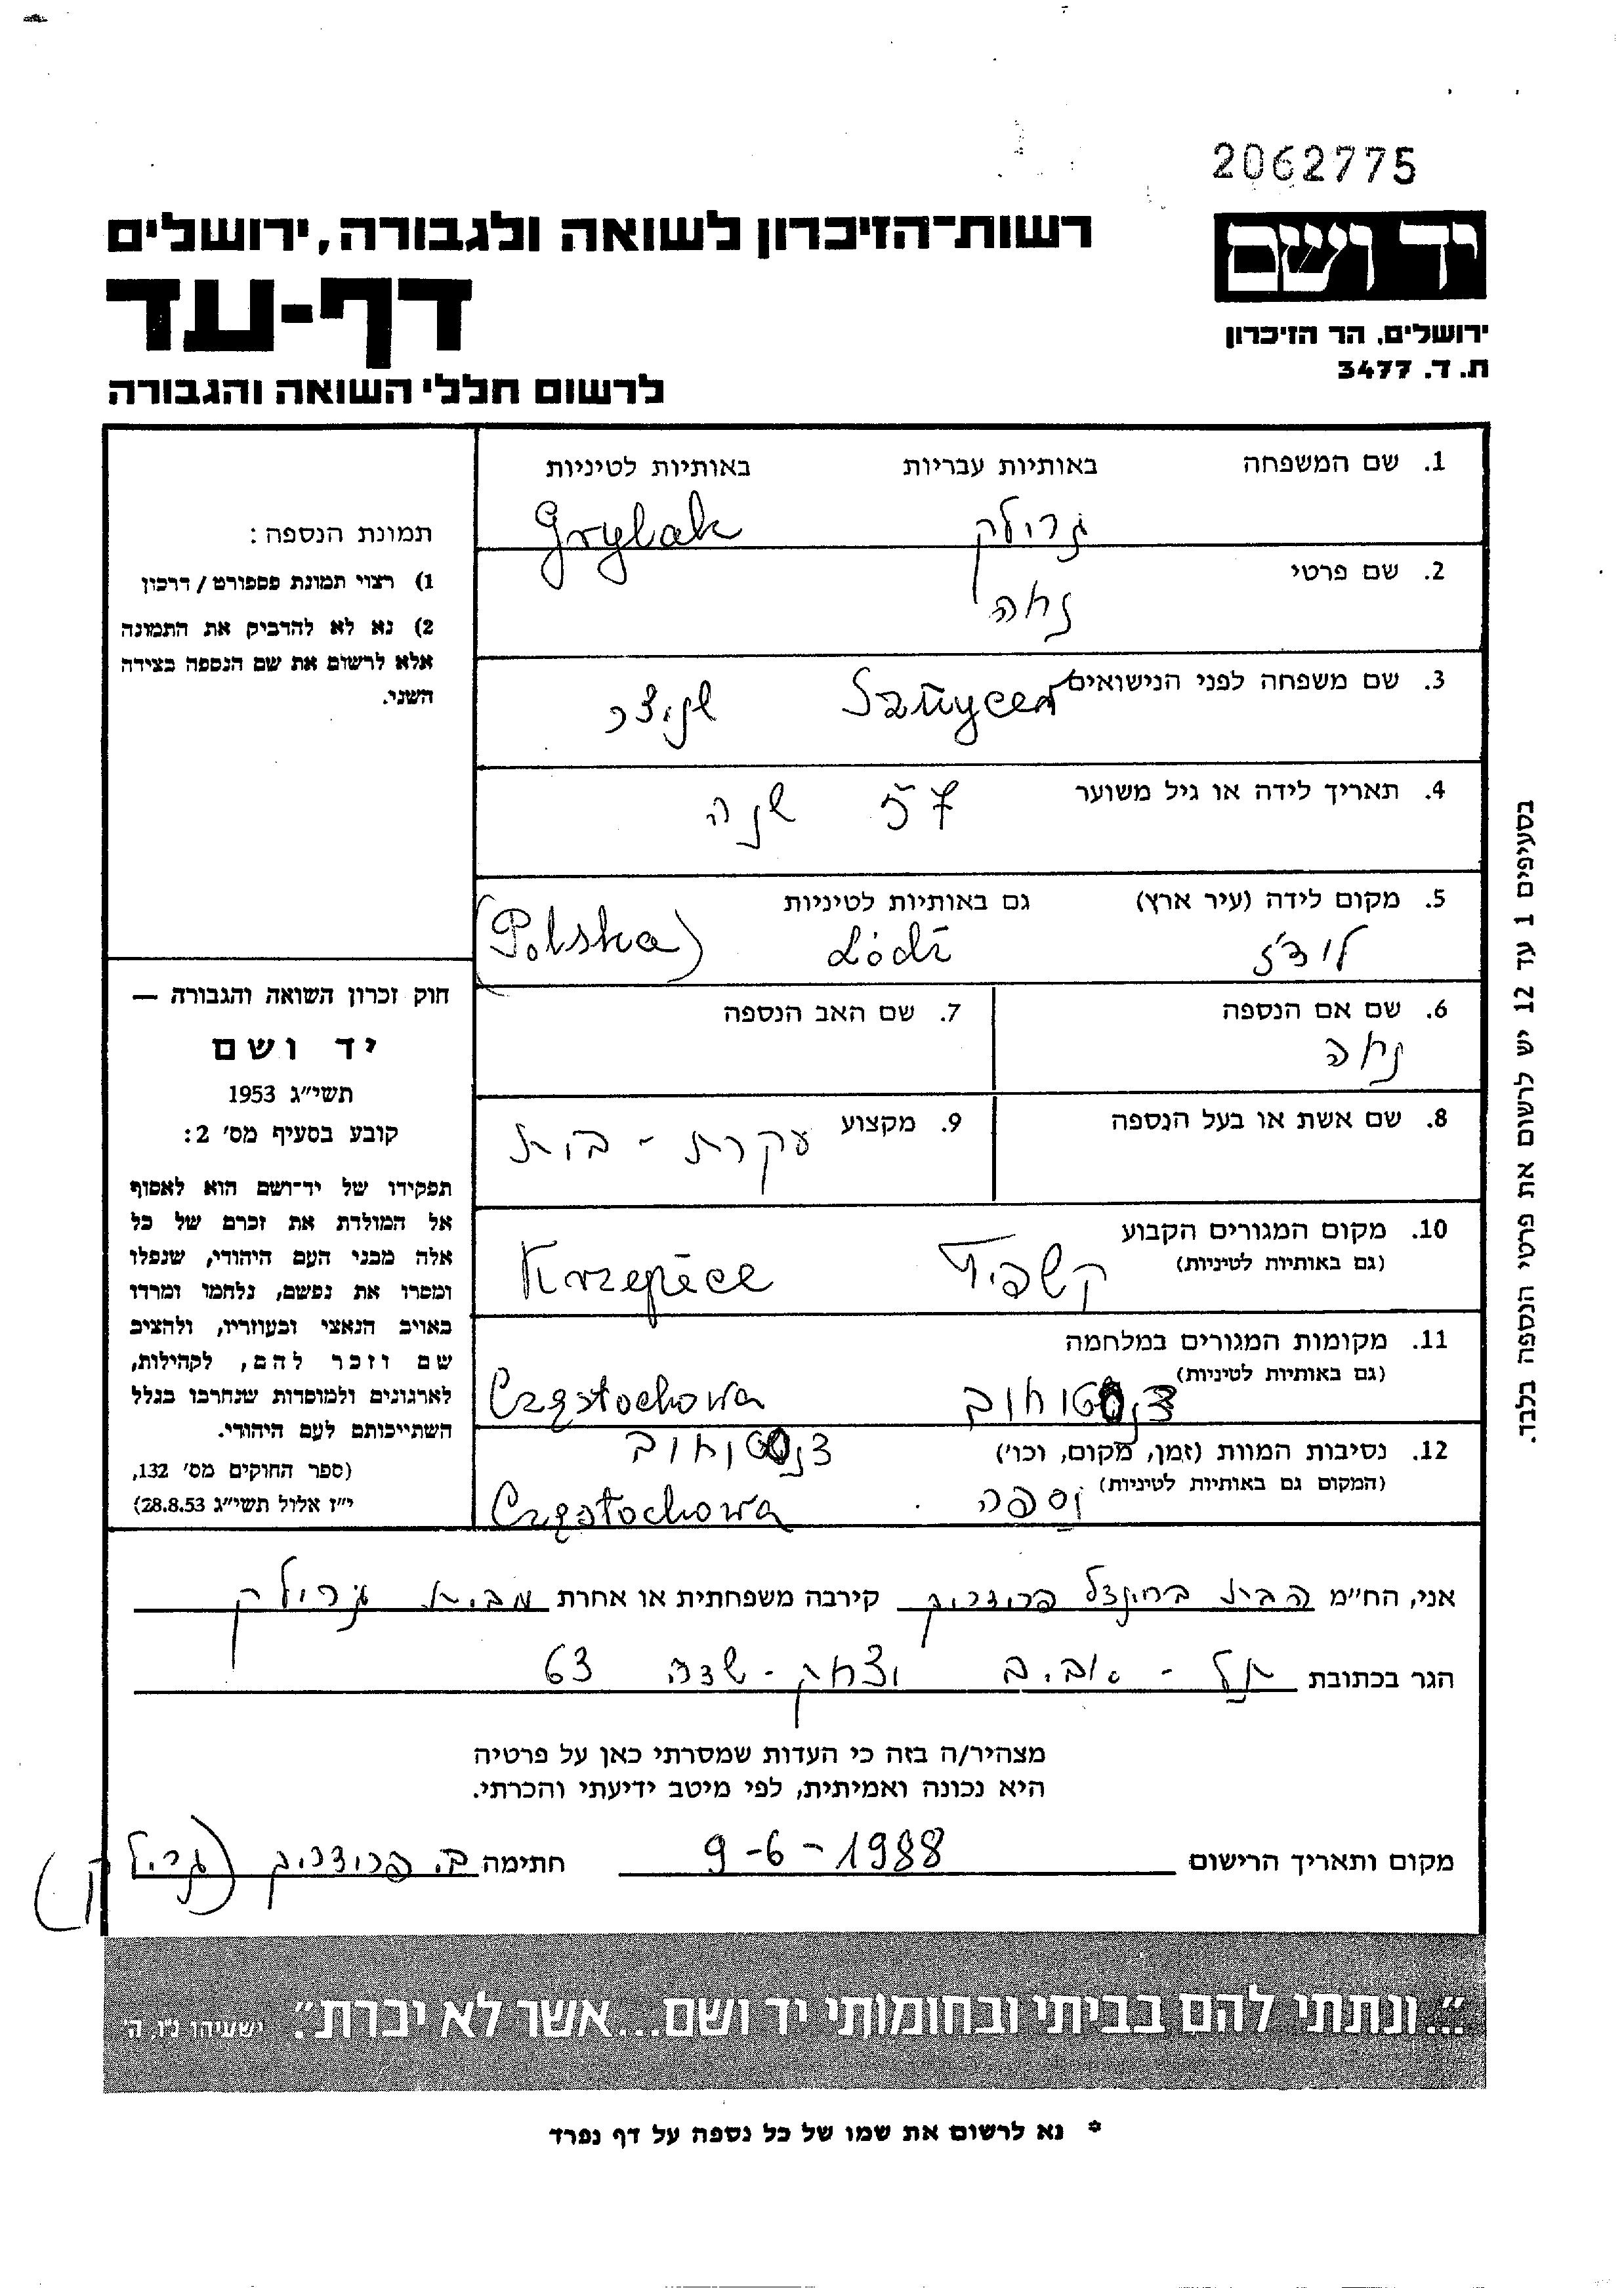 2062775
יד ושם
ירושלים, הר הזיכרון
ת. ד. 3477
רשות-הזיכרון לשואה ולגבורה, ירושלים
דף-עד
לרשום חללי השואה והגבורה
1. שם המשפחה באותיות עבריות באותיות לטיניות
Grylak
2. שם פרטי
3. שם משפחה לפני הנישואים
4. תאריך לידה או גיל משוער
57 שנה
5. מקום לידה (עיר ארץ) גם באותיות לטיניות
לודז' Łódź (Polska)
6. שם אם הנספה 7. שם האב הנספה
8. שם אשת או בעל הנספה 9. מקצוע
עקרת - בית
10. מקום המגורים הקבוע
(גם באותיות לטיניות)
Krzepice
11. מקומות המגורים במלחמה
(גם באותיות לטיניות)
Częstochowa
12. נסיבות המוות (זמן, מקום, וכו')
(המקום גם באותיות לטיניות)
נספה Częstochowa
תמונת הנספה:
1) רצוי תמונת פספורט / דרכון
2) נא לא להדביק את התמונה
אלא לרשום את שם הנספה בצידה
השני.
חוק זכרון השואה והגבורה —
יד ושם
תשי״ג 1953
קובע בסעיף מס׳ 2:
תפקידו של יד-ושם הוא לאסוף
אל המולדת את זכרם של כל
אלה מבני העם היהודי, שנפלו
ומסרו את נפשם, נלחמו ומרדו
באויב הנאצי ובעוזריו, ולהציב
שם וזכר להם, לקהילות,
לארגונים ולמוסדות שנחרבו בגלל
השתייכותם לעם היהודי.
(ספר החוקים מס׳ 132,
י״ז אלול תשי״ג 28.8.53)
בסעיפים 1 עד 12 יש לרשום את פרטי הנספה בלבד.
אני, הח״מ קירבה משפחתית או אחרת
הגר בכתובת תל - אביב יצחק - שדה 63
מצהיר/ה בזה כי העדות שמסרתי כאן על פרטיה
היא נכונה ואמיתית, לפי מיטב ידיעתי והכרתי.
מקום ותאריך הרישום 9-6-1988 חתימה
״...ונתתי להם בביתי ובחומותי יד ושם...אשר לא יכרת״. ישעיהו נ״ו, ה׳
* נא לרשום את שמו של כל נספה על דף נפרד